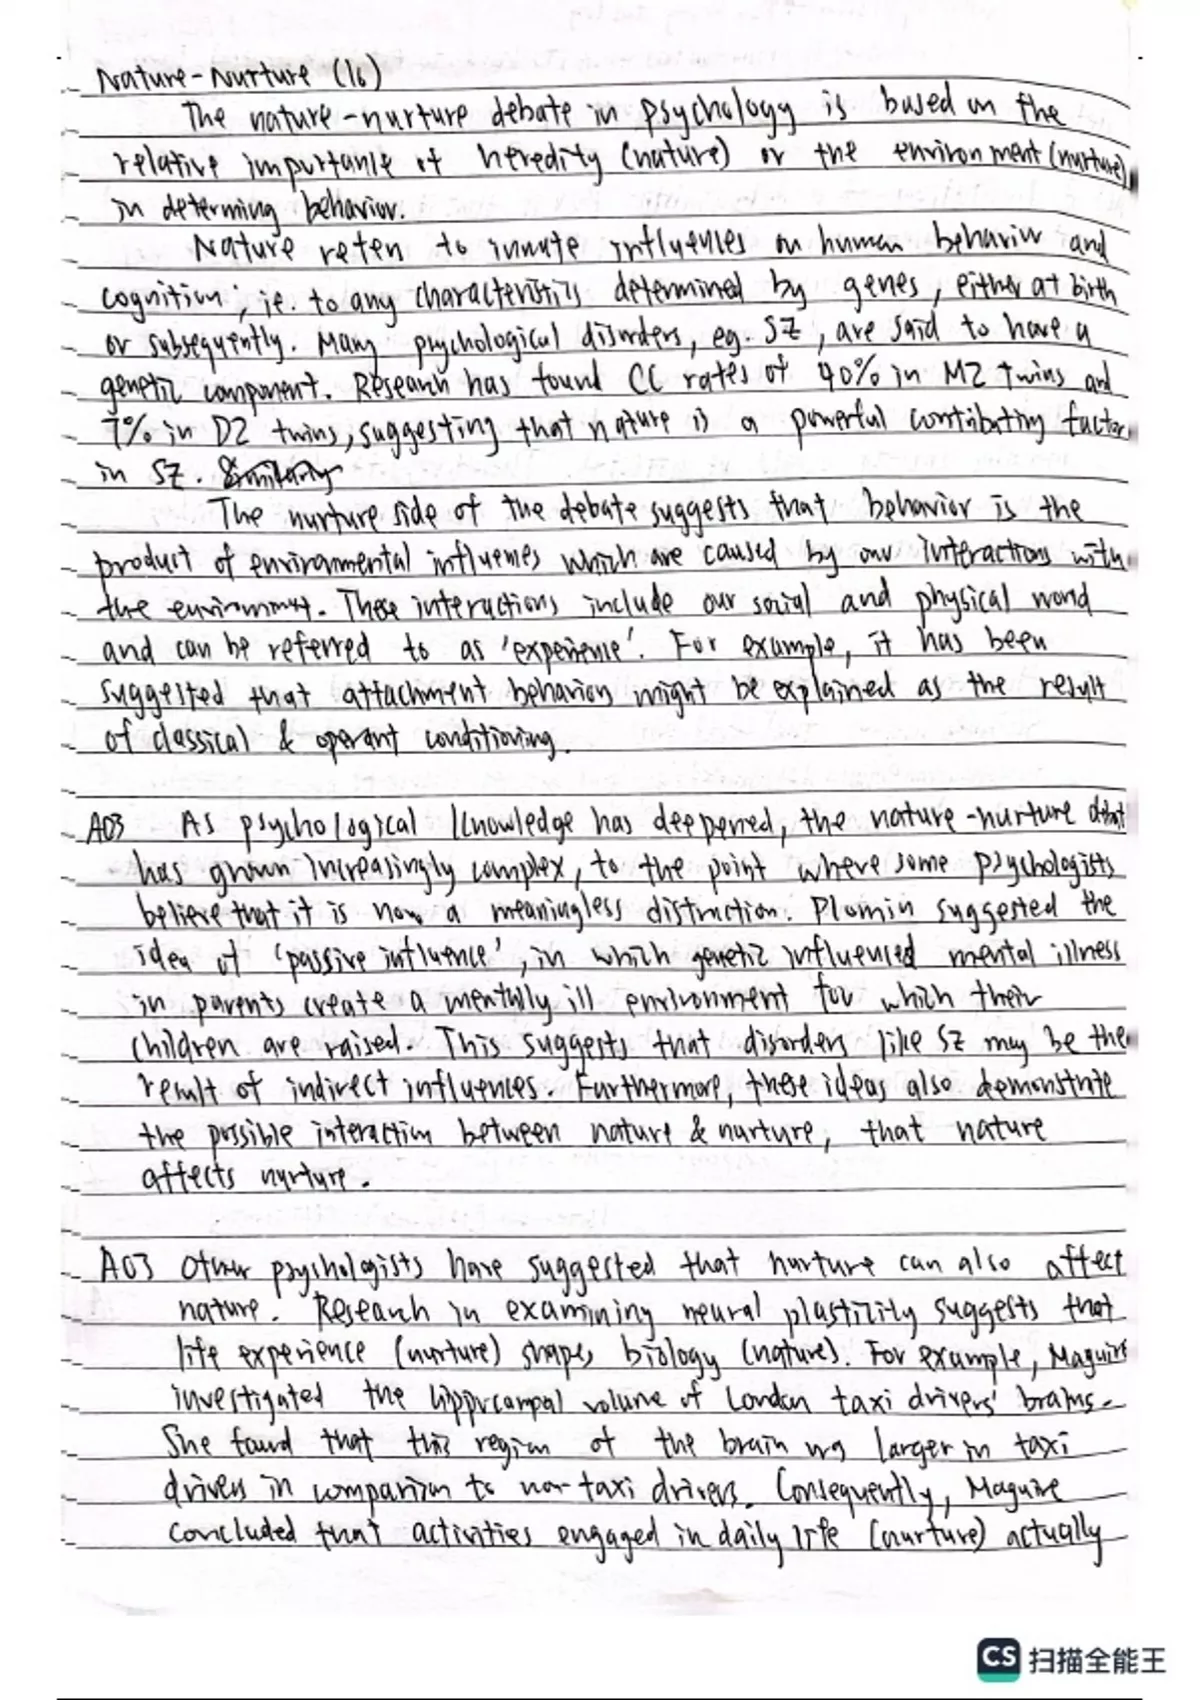 Nature-Nurture (16)
The nature-nurture debate in psychology is based on the
relative importance of heredity (nature) or the environment (nurture)
in determing behavior.
Nature refers to innate influences on human behavior and
cognition; ie. to any characteristics determined by genes, either at birth
or subsequently. Many psychological disorders, eg. SZ, are said to have a
genetic component. Research has found CC rates of 40% in MZ twins and
7% in DZ twins, suggesting that nature is a powerful contributing factor
in SZ. Similarly
The nurture side of the debate suggests that behavior is the
product of environmental influences which are caused by our interactions with
the environment. These interactions include our social and physical world
and can be referred to as 'experience'. For example, it has been
suggested that attachment behaviors might be explained as the result
of classical & operant conditioning.
AO3 As psychological knowledge has deepened, the nature-nurture debate
has grown increasingly complex, to the point where some psychologists
believe that it is now a meaningless distinction. Plomin suggested the
idea of 'passive influence', in which genetic influenced mental illness
in parents create a mentally ill environment for which their
children are raised. This suggests that disorders like SZ may be the
result of indirect influences. Furthermore, these ideas also demonstrate
the possible interaction between nature & nurture, that nature
affects nurture.
AO3 Other psychologists have suggested that nurture can also affect
nature. Research in examining neural plasticity suggests that
life experience (nurture) shapes biology (nature). For example, Maguire
investigated the hippocampal volume of London taxi drivers' brains.
She found that this region of the brain was larger in taxi
drivers in comparison to non-taxi drivers. Consequently, Maguire
concluded that activities engaged in daily life (nurture) actually
CS 扫描全能王